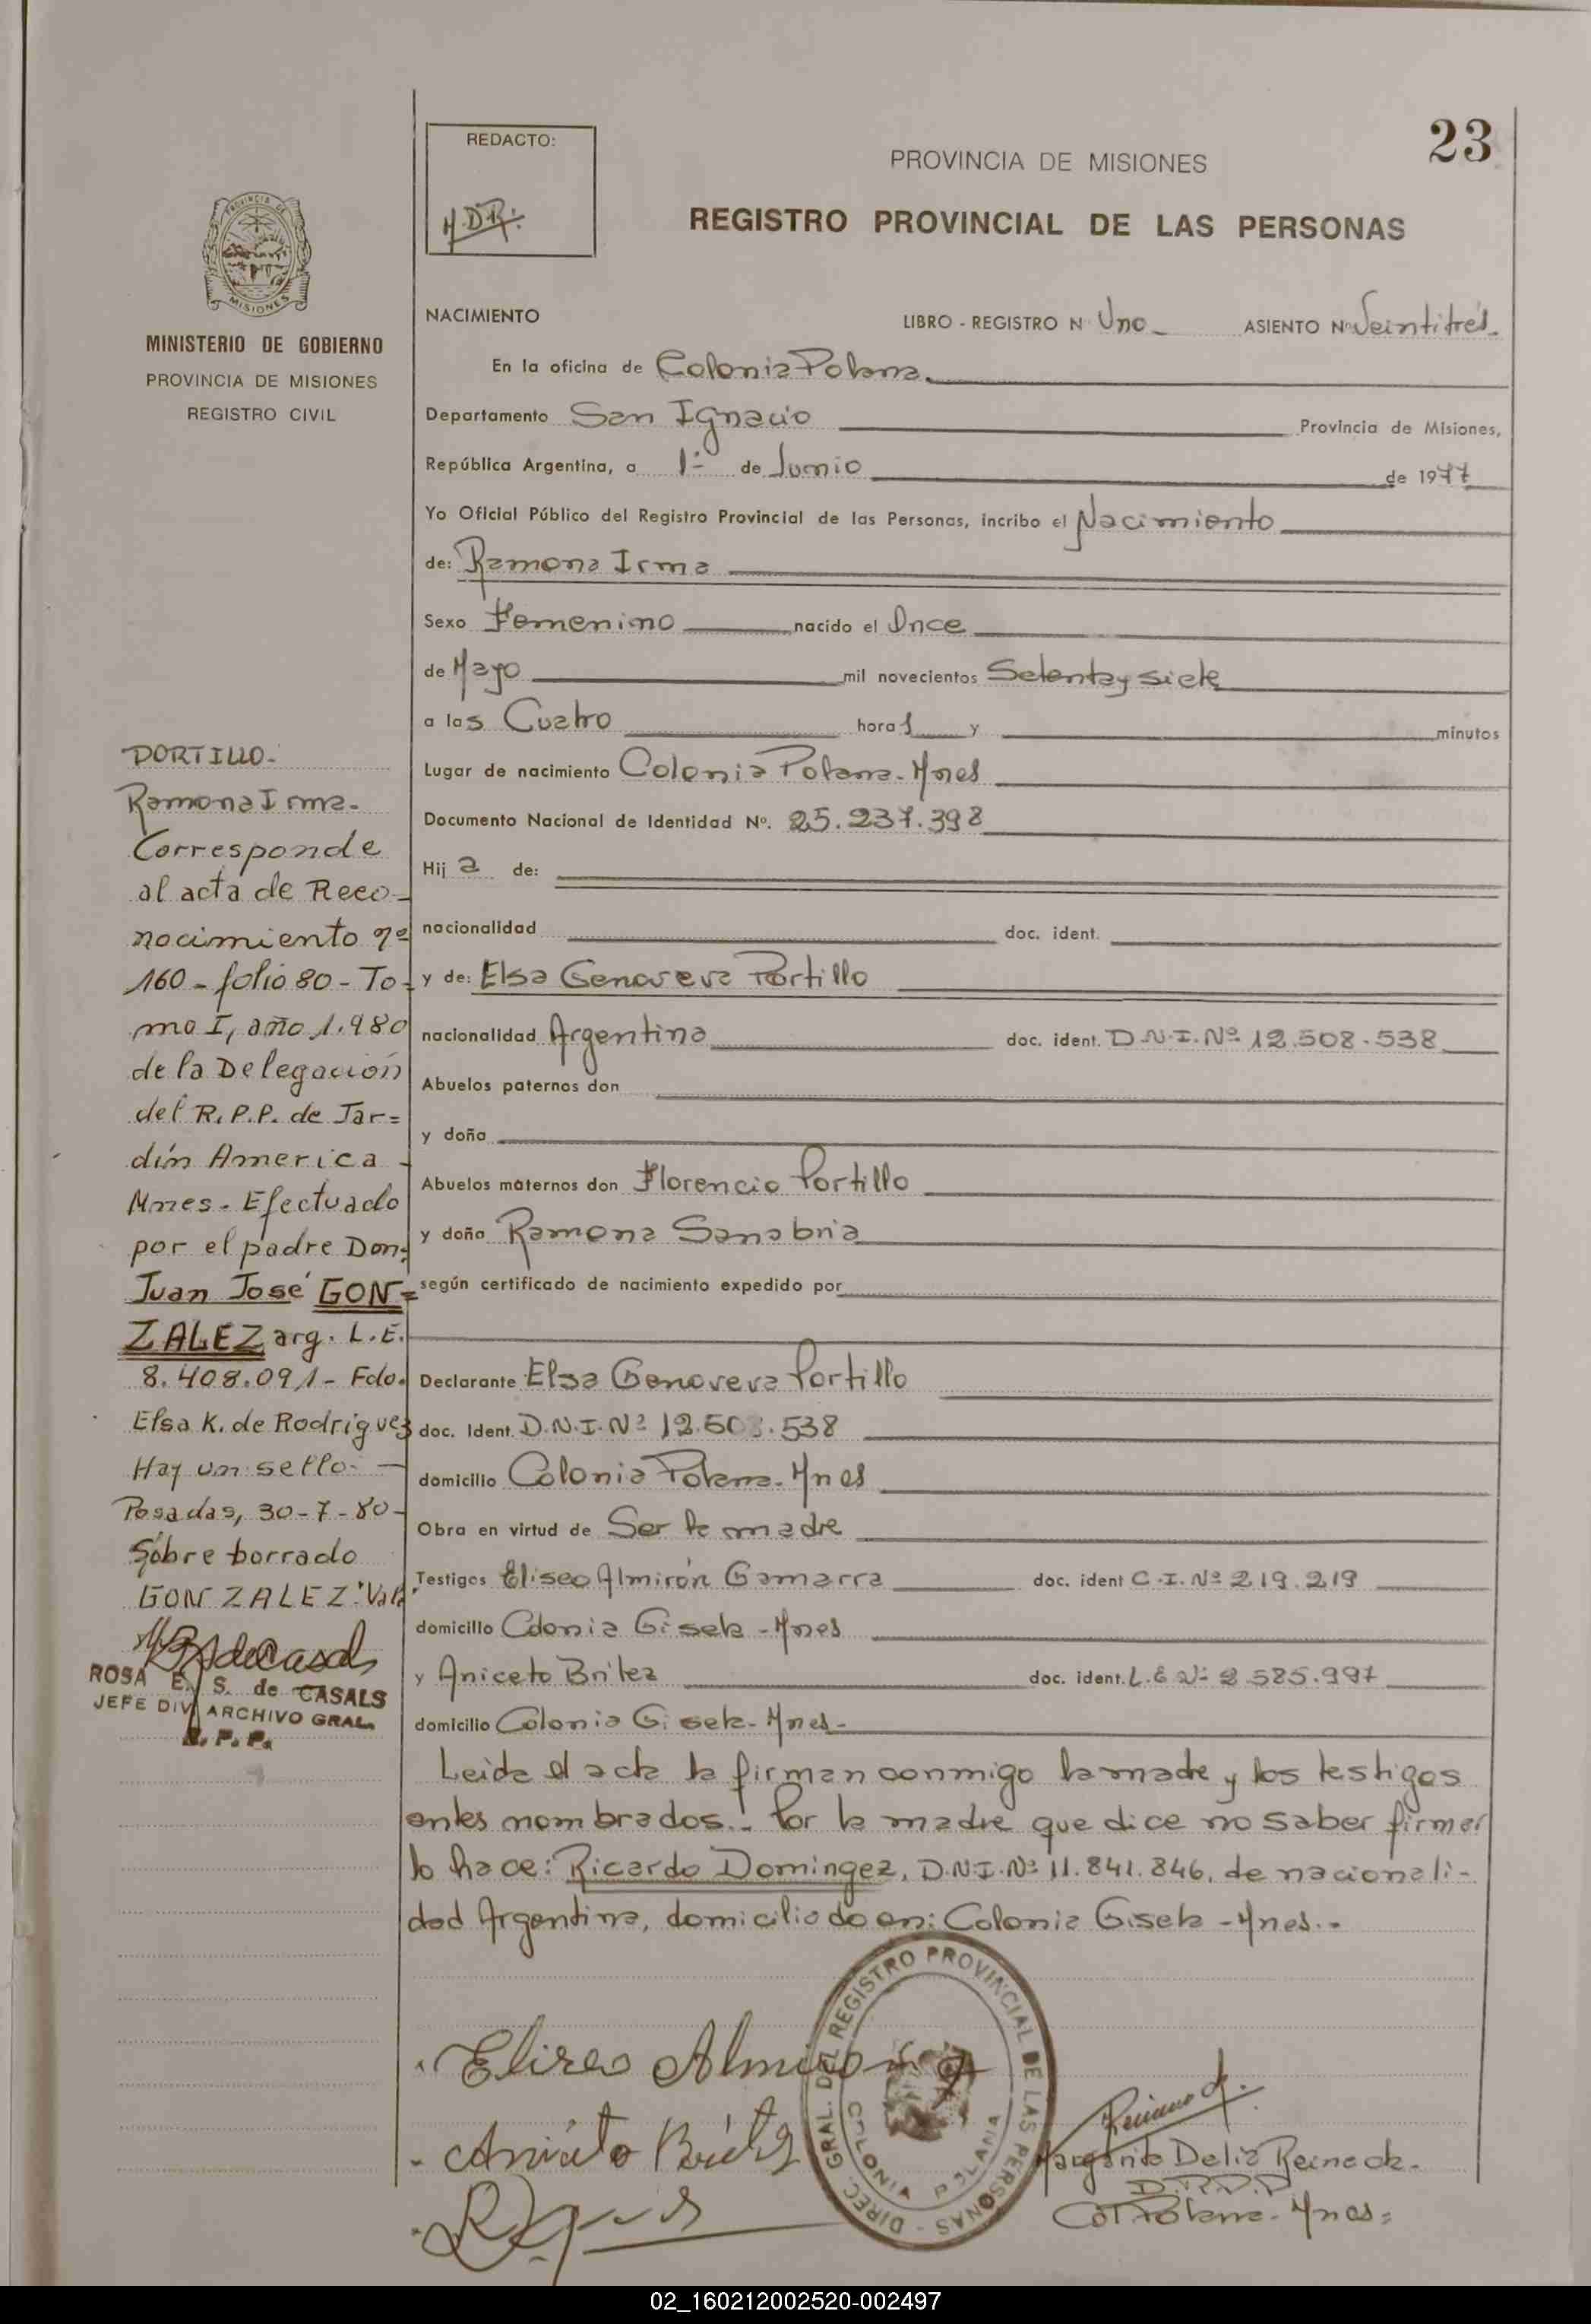 23
REDACTO:
H.D.R.
PROVINCIA DE MISIONES
REGISTRO PROVINCIAL DE LAS PERSONAS
PROVINCIA DE
MISIONES
MINISTERIO DE GOBIERNO
PROVINCIA DE MISIONES
REGISTRO CIVIL
NACIMIENTO LIBRO - REGISTRO N Uno_ ASIENTO Nº Veintitrés.
En la oficina de Colonia Polana.
Departamento San Ignacio Provincia de Misiones,
República Argentina, a 1º de Junio de 1977
Yo Oficial Público del Registro Provincial de las Personas, incribo el Nacimiento
de: Ramona Irma
Sexo Femenino nacido el Once
de Mayo mil novecientos Setenta y siete
a las Cuatro horas y minutos
Lugar de nacimiento Colonia Polana - Mnes
Documento Nacional de Identidad Nº. 25.237.398
Hij a de:
nacionalidad doc. ident.
y de: Elsa Genoveva Portillo
nacionalidad Argentina doc. ident. D.N.I. Nº 12.508.538
Abuelos paternos don
y doña
Abuelos maternos don Florencio Portillo
y doña Ramona Sanabria
según certificado de nacimiento expedido por
Declarante Elsa Genoveva Portillo
doc. Ident. D.N.I. Nº 12.508.538
domicilio Colonia Polana - Mnes
Obra en virtud de Ser la madre
Testigos Eliseo Almirón Gamarra doc. ident C.I. Nº 219.219
domicilio Colonia Gisela - Mnes
y Aniceto Britez doc. ident. L.E Nº 2.585.997
domicilio Colonia Gisela - Mnes -
Leida el acta la firman conmigo la madre y los testigos
antes nombrados.- Por la madre que dice no saber firmar
lo hace: Ricardo Domingez, D.N.I. Nº 11.841.846, de nacionali-
dad Argentina, domiciliado en: Colonia Gisela - Mnes.-
PORTILLO-
Ramona Irma-
Corresponde
al acta de Reco-
nocimiento nº
160 - folio 80 - To-
mo I, año 1.980
de la Delegación
del R.P.P. de Jar=
dín America -
Mnes - Efectuado
por el padre Don:
Juan José GON=
ZALEZ arg. L.E.
8.408.091- Fdo.
Elsa K. de Rodriguez
Hay un sello. -
Posadas, 30-7-80-
Sobre borrado
GONZALEZ: Vale
ROSA E. S. de CASALS
JEFE DIV ARCHIVO GRAL.
R. P. P.
Eliseo Almiron
Aniceto Britez
DIREC. GRAL. DEL REGISTRO PROVINCIAL DE LAS PERSONAS -
COLONIA POLANA
Margarita Delia Reineck.
Col Polana - Mnes=
02_160212002520-002497